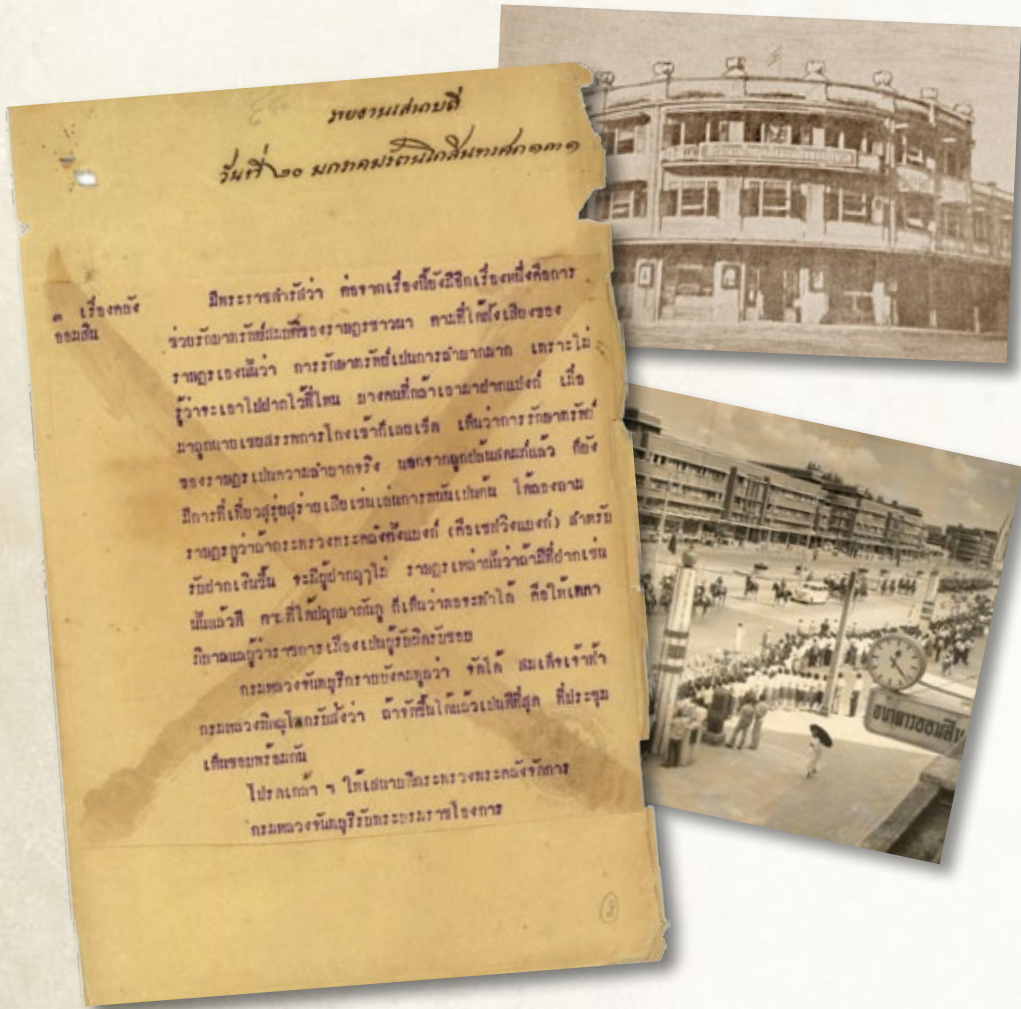 รายงานเสนาบดี
วันที่ ๒๐ มกราคม รัตนโกสินทรศก ๑๓๑
๓ เรื่องคลัง
ออมสิน
มีพระราชดำรัสว่า ต่อจากเรื่องนี้ยังมีอีกเรื่องหนึ่งคือการ
ช่วยรักษาทรัพย์สมบัติของราษฎรชาวนา ตามที่ได้ฟังเสียงของ
ราษฎรเองนั้นว่า การรักษาทรัพย์เปนการลำบากมาก เพราะไม่
รู้ว่าจะเอาไปฝากไว้ที่ไหน บางคนที่กล้าเอามาฝากแบงก์ เมื่อ
มาถูกนายเชยสรรพการโกงเข้าก็เลยเข็ด เห็นว่าการรักษาทรัพย์
ของราษฎรเปนความลำบากจริง นอกจากถูกปล้นสดมภ์แล้ว ก็ยัง
มีการที่เที่ยวสุรุ่ยสุร่ายเสียเช่นเล่นการพนันเปนต้น ได้ลองถาม
ราษฎรดูว่าถ้ากระทรวงพระคลังตั้งแบงก์ (คือเซฟวิงแบงก์) สำหรับ
รับฝากเงินขึ้น จะมีผู้ฝากฤๅไม่ ราษฎรเหล่านั้นว่าถ้ามีที่ฝากเช่น
นั้นแล้วดี ตามที่ได้ปฤกษากันดู ก็เห็นว่าพอจะทำได้ คือให้เทศา
ภิบาลแลผู้ว่าราชการเมืองเปนผู้รับผิดรับชอบ
กรมหลวงจันทบุรีกราบบังคมทูลว่า จัดได้ สมเด็จเจ้าฟ้า
กรมหลวงพิษณุโลกรับสั่งว่า ถ้าจัดขึ้นได้แล้วเปนดีที่สุด ที่ประชุม
เห็นชอบพร้อมกัน
โปรดเกล้า ฯ ให้เสนาบดีกระทรวงพระคลังจัดการ
กรมหลวงจันทบุรีรับพระบรมราชโองการ
ธนาคารออมสิน